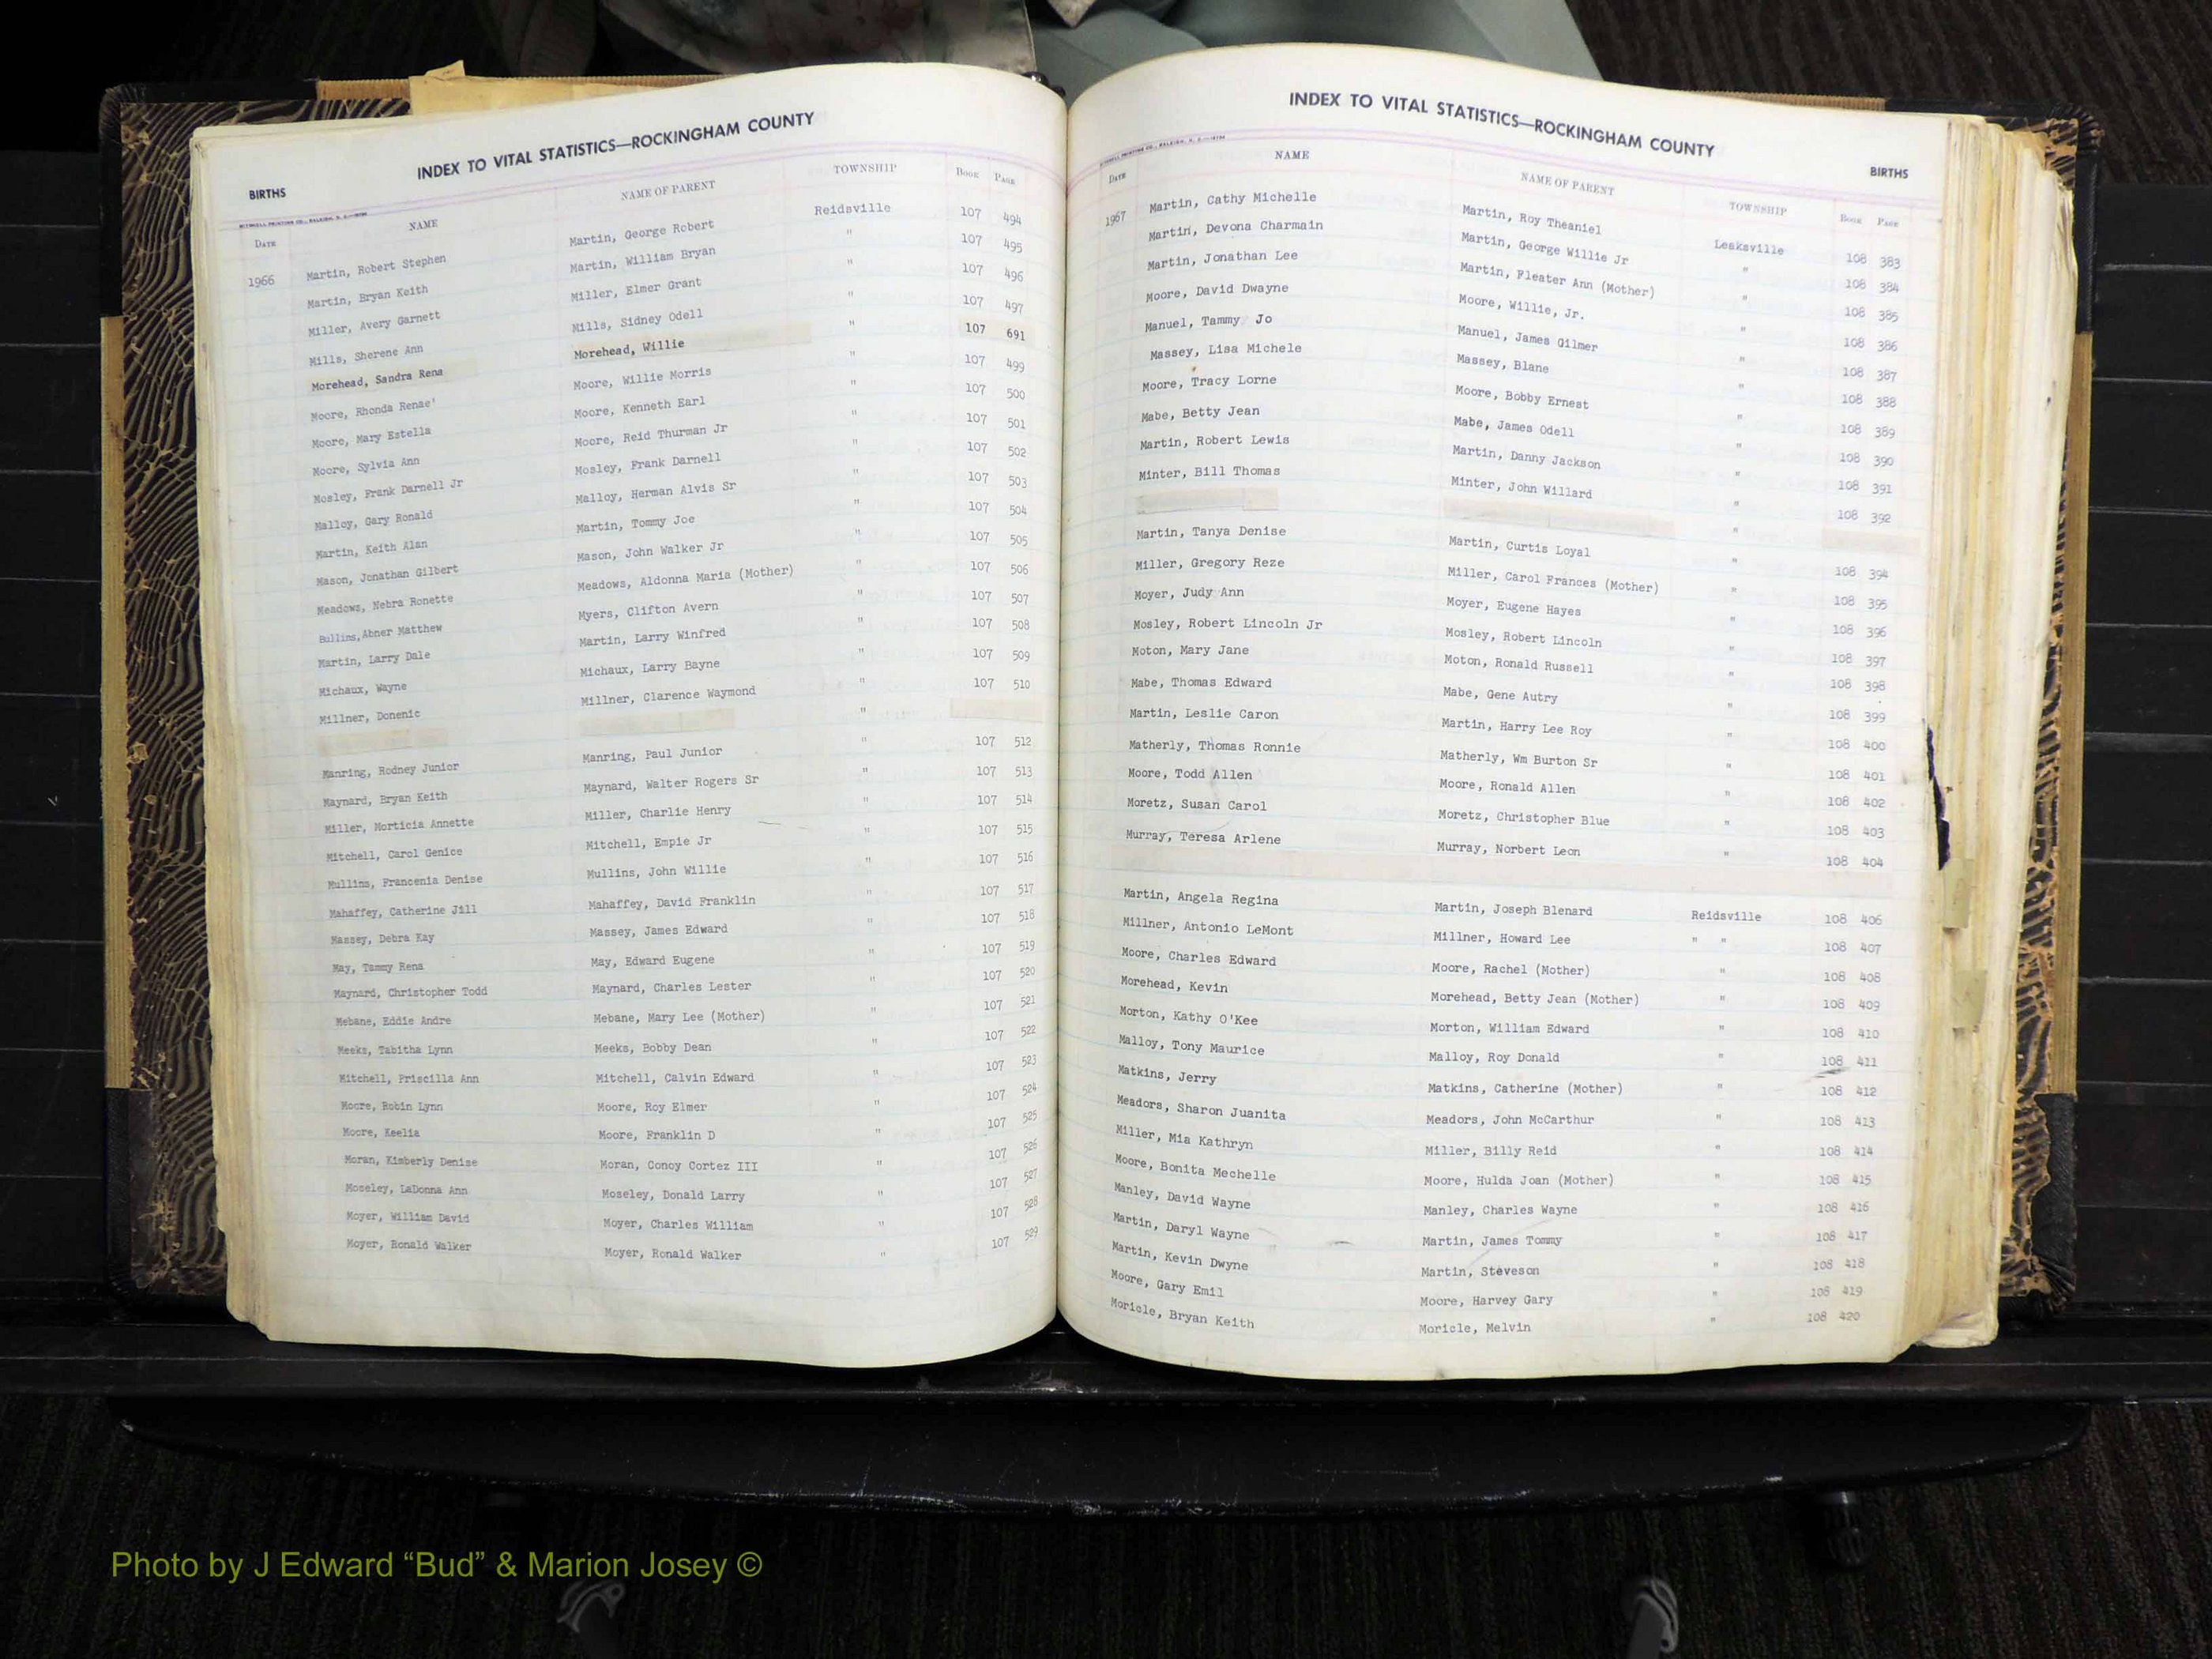 INDEX TO VITAL STATISTICS—ROCKINGHAM COUNTY
BIRTHS
DATE NAME NAME OF PARENT TOWNSHIP BOOK PAGE
1966 Martin, Robert Stephen Martin, George Robert Reidsville 107 494
Martin, Bryan Keith Martin, William Bryan " 107 495
Miller, Avery Garnett Miller, Elmer Grant " 107 496
Mills, Sherene Ann Mills, Sidney Odell " 107 497
Morehead, Sandra Rena Morehead, Willie " 107 691
Moore, Rhonda Renae' Moore, Willie Morris " 107 499
Moore, Mary Estella Moore, Kenneth Earl " 107 500
Moore, Sylvia Ann Moore, Reid Thurman Jr " 107 501
Mosley, Frank Darnell Jr Mosley, Frank Darnell " 107 502
Malloy, Gary Ronald Malloy, Herman Alvis Sr " 107 503
Martin, Keith Alan Martin, Tommy Joe " 107 504
Mason, Jonathan Gilbert Mason, John Walker Jr " 107 505
Meadows, Nebra Ronette Meadows, Aldonna Maria (Mother) " 107 506
Bullins, Abner Matthew Myers, Clifton Avern " 107 507
Martin, Larry Dale Martin, Larry Winfred " 107 508
Michaux, Wayne Michaux, Larry Bayne " 107 509
Millner, Donenic Millner, Clarence Waymond " 107 510
"
Manring, Rodney Junior Manring, Paul Junior " 107 512
Maynard, Bryan Keith Maynard, Walter Rogers Sr " 107 513
Miller, Morticia Annette Miller, Charlie Henry " 107 514
Mitchell, Carol Genice Mitchell, Empie Jr " 107 515
Mullins, Francenia Denise Mullins, John Willie " 107 516
Mahaffey, Catherine Jill Mahaffey, David Franklin " 107 517
Massey, Debra Kay Massey, James Edward " 107 518
May, Tammy Rena May, Edward Eugene " 107 519
Maynard, Christopher Todd Maynard, Charles Lester " 107 520
Mebane, Eddie Andre Mebane, Mary Lee (Mother) " 107 521
Meeks, Tabitha Lynn Meeks, Bobby Dean " 107 522
Mitchell, Priscilla Ann Mitchell, Calvin Edward " 107 523
Moore, Robin Lynn Moore, Roy Elmer " 107 524
Moore, Keelia Moore, Franklin D " 107 525
Moran, Kimberly Denise Moran, Conoy Cortez III " 107 526
Moseley, LaDonna Ann Moseley, Donald Larry " 107 527
Moyer, William David Moyer, Charles William " 107 528
Moyer, Ronald Walker Moyer, Ronald Walker " 107 529
INDEX TO VITAL STATISTICS—ROCKINGHAM COUNTY
BIRTHS
DATE NAME NAME OF PARENT TOWNSHIP BOOK PAGE
1967 Martin, Cathy Michelle Martin, Roy Theaniel Leaksville 108 383
Martin, Devona Charmain Martin, George Willie Jr " 108 384
Martin, Jonathan Lee Martin, Fleater Ann (Mother) " 108 385
Moore, David Dwayne Moore, Willie, Jr. " 108 386
Manuel, Tammy Jo Manuel, James Gilmer " 108 387
Massey, Lisa Michele Massey, Blane " 108 388
Moore, Tracy Lorne Moore, Bobby Ernest " 108 389
Mabe, Betty Jean Mabe, James Odell " 108 390
Martin, Robert Lewis Martin, Danny Jackson " 108 391
Minter, Bill Thomas Minter, John Willard " 108 392
"
Martin, Tanya Denise Martin, Curtis Loyal " 108 394
Miller, Gregory Reze Miller, Carol Frances (Mother) " 108 395
Moyer, Judy Ann Moyer, Eugene Hayes " 108 396
Mosley, Robert Lincoln Jr Mosley, Robert Lincoln " 108 397
Moton, Mary Jane Moton, Ronald Russell " 108 398
Mabe, Thomas Edward Mabe, Gene Autry " 108 399
Martin, Leslie Caron Martin, Harry Lee Roy " 108 400
Matherly, Thomas Ronnie Matherly, Wm Burton Sr " 108 401
Moore, Todd Allen Moore, Ronald Allen " 108 402
Moretz, Susan Carol Moretz, Christopher Blue " 108 403
Murray, Teresa Arlene Murray, Norbert Leon " 108 404
Martin, Angela Regina Martin, Joseph Blenard Reidsville 108 406
Millner, Antonio LeMont Millner, Howard Lee " " 108 407
Moore, Charles Edward Moore, Rachel (Mother) " 108 408
Morehead, Kevin Morehead, Betty Jean (Mother) " 108 409
Morton, Kathy O'Kee Morton, William Edward " 108 410
Malloy, Tony Maurice Malloy, Roy Donald " 108 411
Matkins, Jerry Matkins, Catherine (Mother) " 108 412
Meadors, Sharon Juanita Meadors, John McCarthur " 108 413
Miller, Mia Kathryn Miller, Billy Reid " 108 414
Moore, Bonita Mechelle Moore, Hulda Joan (Mother) " 108 415
Manley, David Wayne Manley, Charles Wayne " 108 416
Martin, Daryl Wayne Martin, James Tommy " 108 417
Martin, Kevin Dwyne Martin, Steveson " 108 418
Moore, Gary Emil Moore, Harvey Gary " 108 419
Moricle, Bryan Keith Moricle, Melvin " 108 420
Photo by J Edward “Bud” & Marion Josey ©